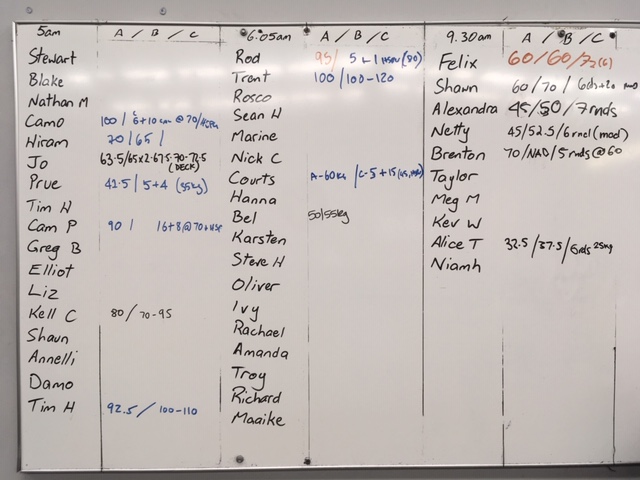 5am A / B / C
Stewart
Blake
Nathan M
Camo 100 / 6+10 @ 70/
Hiram 70 / 65 /
Jo 63.5/65x2-67.5-70-72.5
(DECK)
Prue 42.5 / 5+4 (55kg)
Tim H
Cam P 90 / 16+8 @ 70+
Greg B
Elliot
Liz
Kell C 80 / 70-95
Shaun
Annelli
Damo
Tim H 92.5 / 100-110
6.05am A / B / C
Rod 95/ 5+1 (80)
Trent 100 / 100-120
Rosco
Sean H
Marine
Nick C
Courts A-60kg / C-5+15
Hanna
Bel 50/55kg
Karsten
Steve H
Oliver
Ivy
Rachael
Amanda
Troy
Richard
Maaike
9.30am A / B / C
Felix 60/60/7
Shawn 60/70/
Alexandra 45/50/7rnds
Netty 45/52.5/6rnd(mod)
Brenton 70/NAD/5rnds@60
Taylor
Meg M
Kev W
Alice T 32.5/37.5/6rds 25kg
Niamh